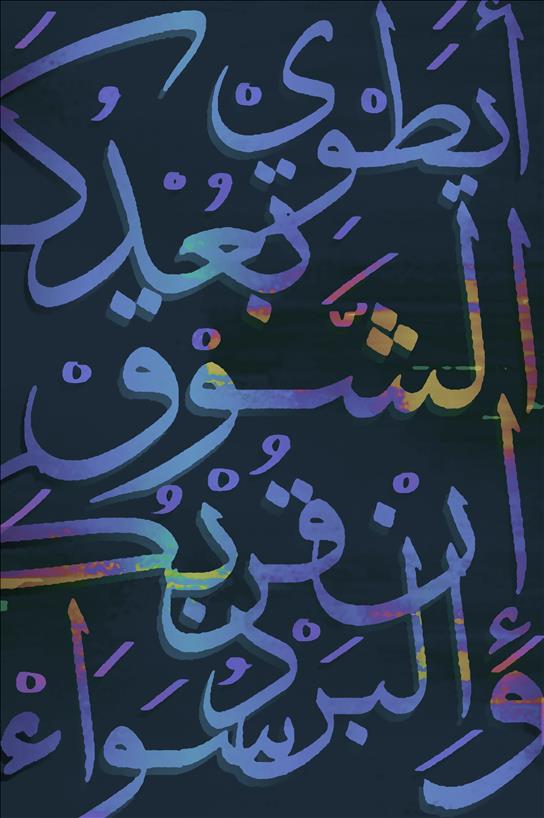 أَيَطْوِيْ
بُعْدُكَ
الشَّوْقْ
إنْ قُرْبُكَ
وَالبَرْدُ
سَوَاءْ